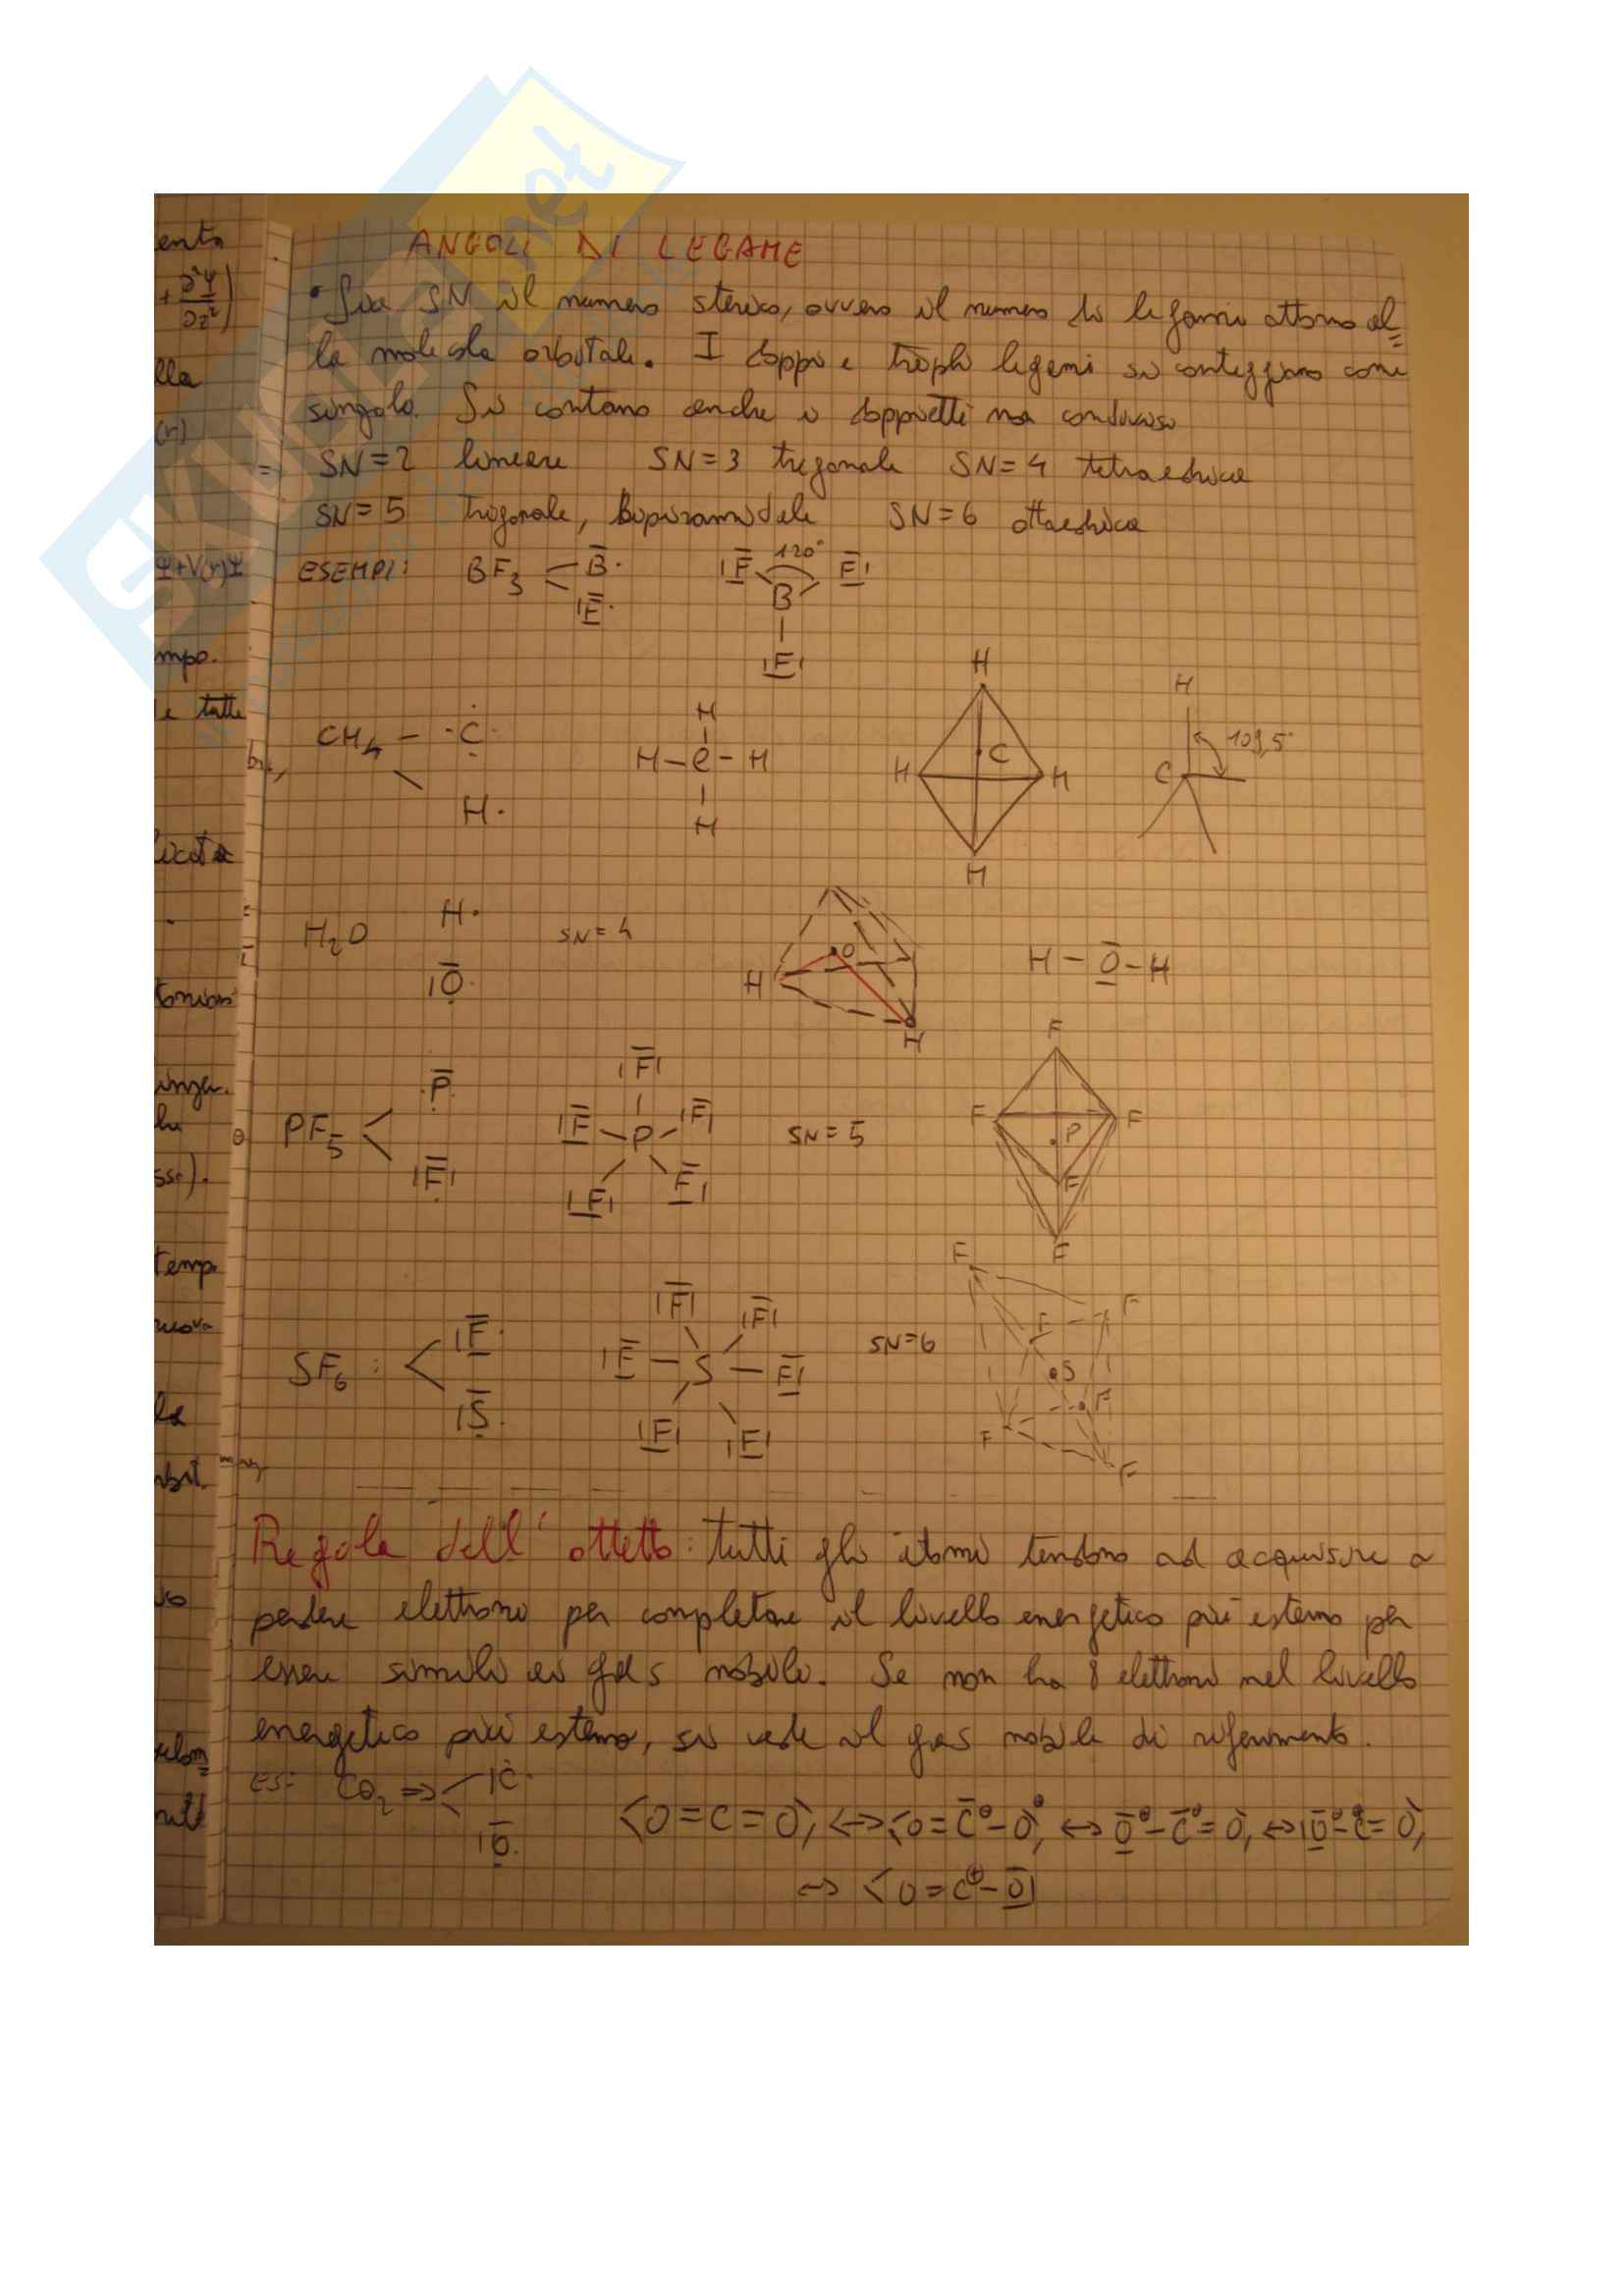 ANGOLI DI LEGAME
• Sia SN il numero sterico, ovvero il numero di legami attorno al=
la molecola orbitale. I doppi e tripli legami si conteggiano come
singolo. Si contano anche i doppietti non condivisi
SN=2 lineare SN=3 trigonale SN=4 tetraedrica
SN=5 trigonale, bipiramidale SN=6 ottaedrica
ESEMPI: BF3 B F F 120° F B F
CH4 C H H H-C-H H H H C H H H C 109,5°
H2O H O SN=4 H O H H-O-H
PF5 P F F F P F F F SN=5 F F P F F F
SF6: F S F F F S F F F SN=6 F F F S F F F
Regola dell'ottetto: tutti gli atomi tendono ad acquisire o
perdere elettroni per completare il livello energetico più esterno per
essere simili ai gas nobili. Se non ha 8 elettroni nel livello
energetico più esterno, si vede il gas nobile di riferimento.
ES: CO2 => C O O=C=O <-> O=C-O <-> O-C=O <-> O-C=O
<-> O=C⊕-O
ento
+ ∂²Ψ/∂z²)
lla
(r)
Ψ+V(r)Ψ
mpo.
e tutte
temp